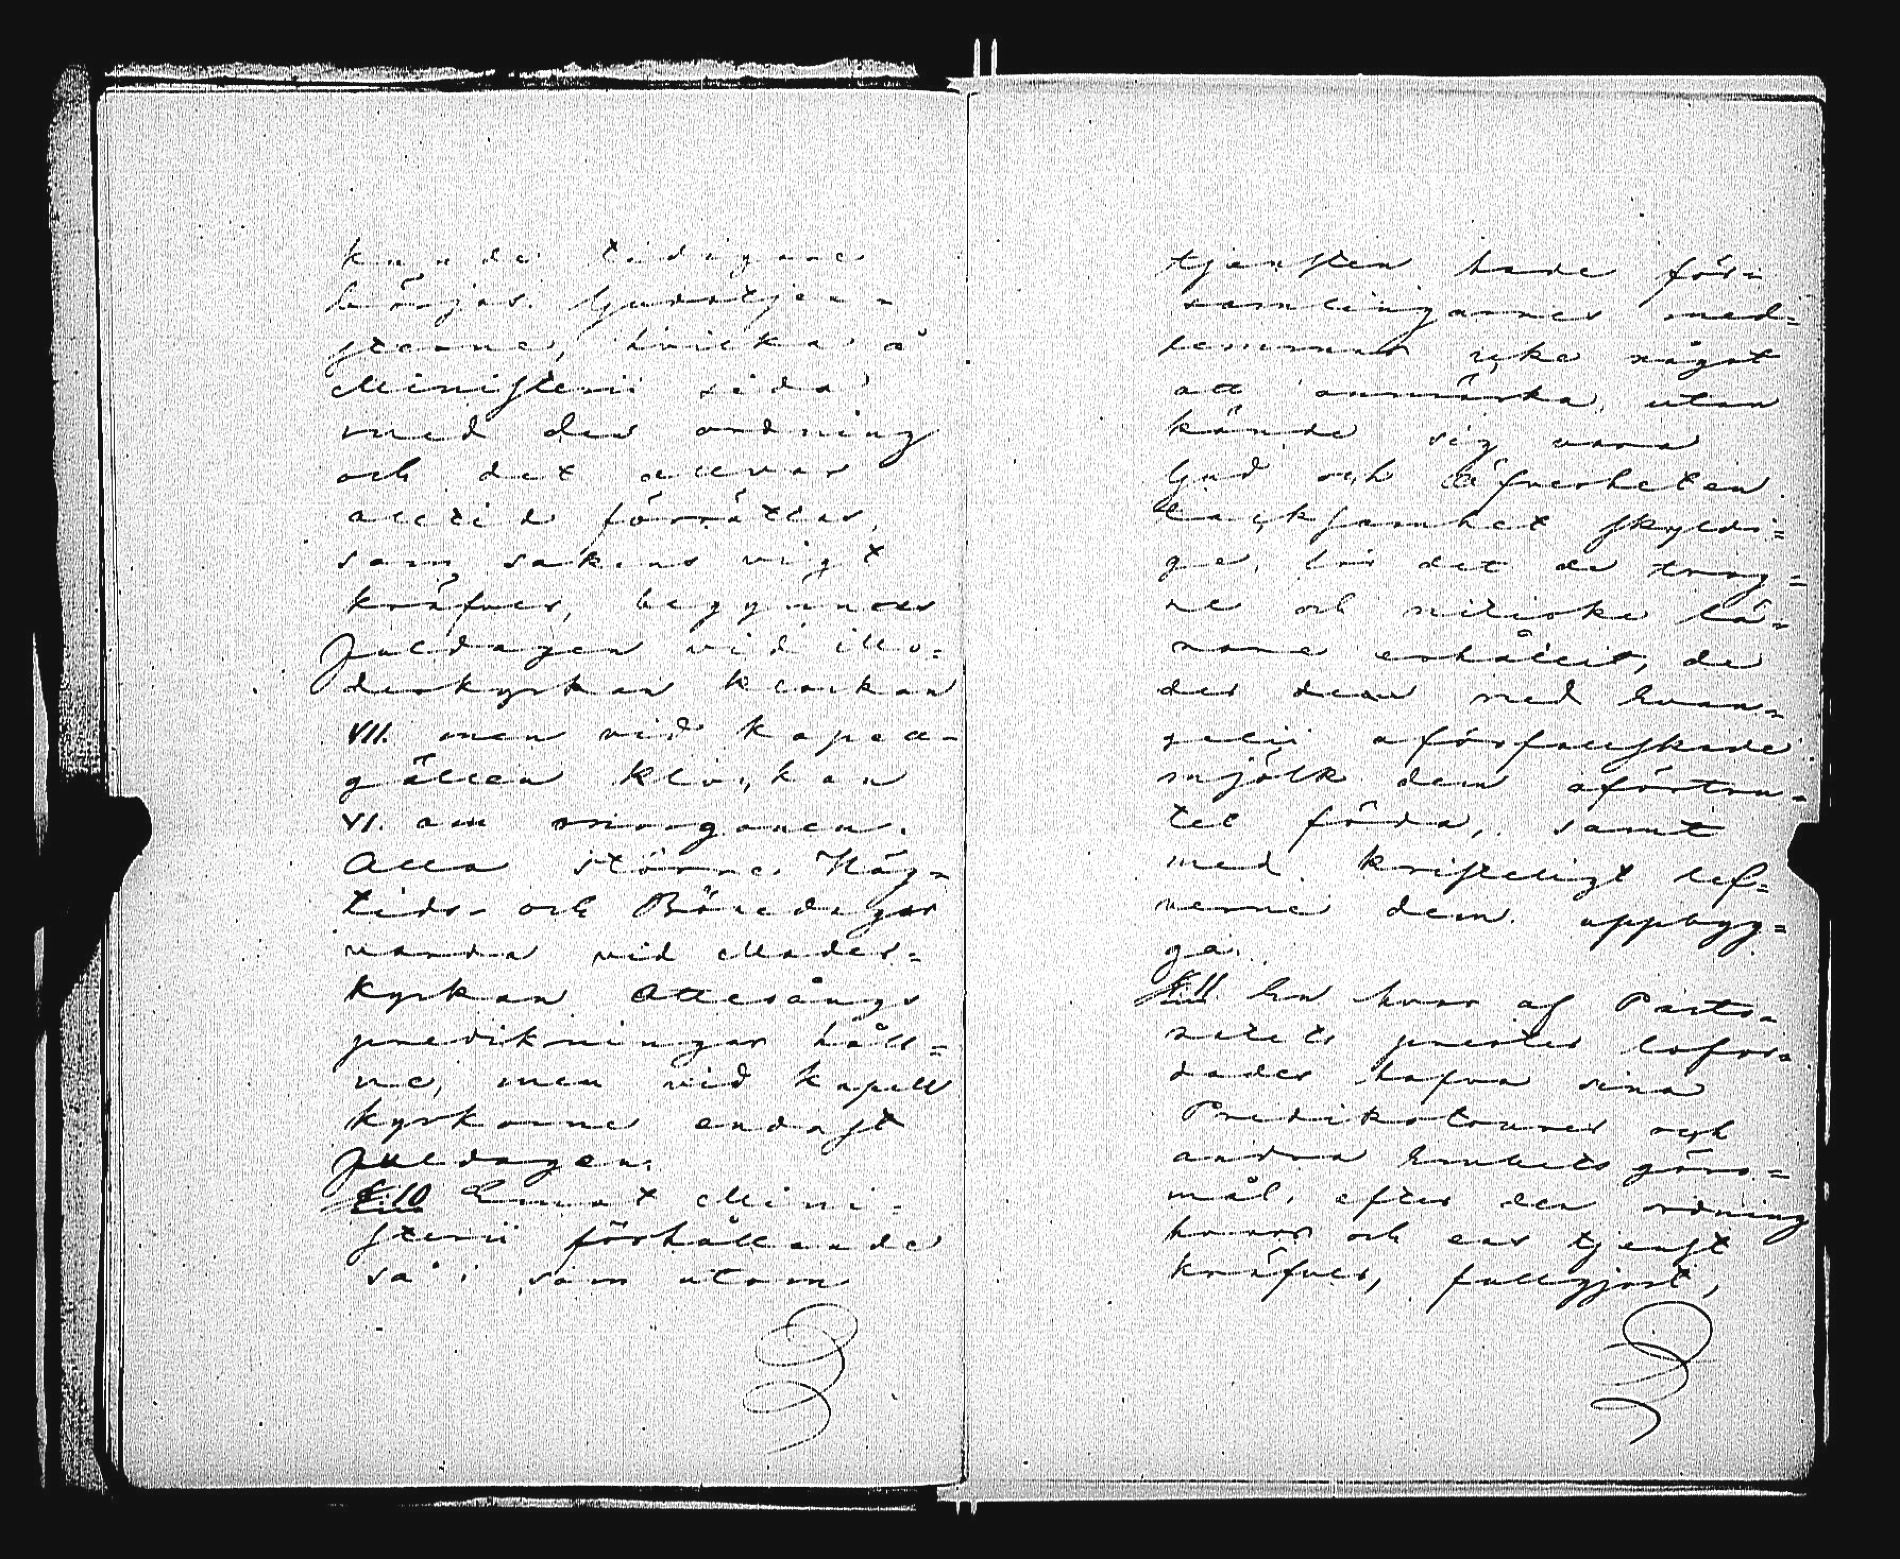 kunde tidigare
börjas. Gudstjen-
sterne, hvilka å
Ministerii sida
med den ordning
och det allvar
alltid förrättas,
som sakens vigt
kräfver, begynnas
Juldagen vid Mo-
derkyrkan klockan
VII. men vid kapell-
gällen klockan
VI. om morgonen.
Alla större Hög-
tids- och Bönedagar
varda vid Moder-
kyrkan Ottesångs
predikningar håll-
ne, men vid kapell
kyrkorne endast
Juldagen.
§. 10 Emot Mini-
sterii förhållande
så i, som utom
tjensten hade för-
samlingarnes med-
lemmar icke något
att anmärka, utan
kände sig vara
Gud och Öfverheten
tacksamhet skyldi-
ge, för det de trog-
ne och nitiske lä-
rare erhållit, de
der dem med Evan-
gelii oförfalskade
mjölk dem oförtru-
tet föda, samt
med kristeligt lef-
verne dem uppbyg-
ga.
§. 11. En hvar af Pasto-
ratets prester lofor-
dades hafva sina
Predikoturer och
andra Embets göro-
mål, efter den ordning
hvars och ens tjenst
kräfver, fullgjort,